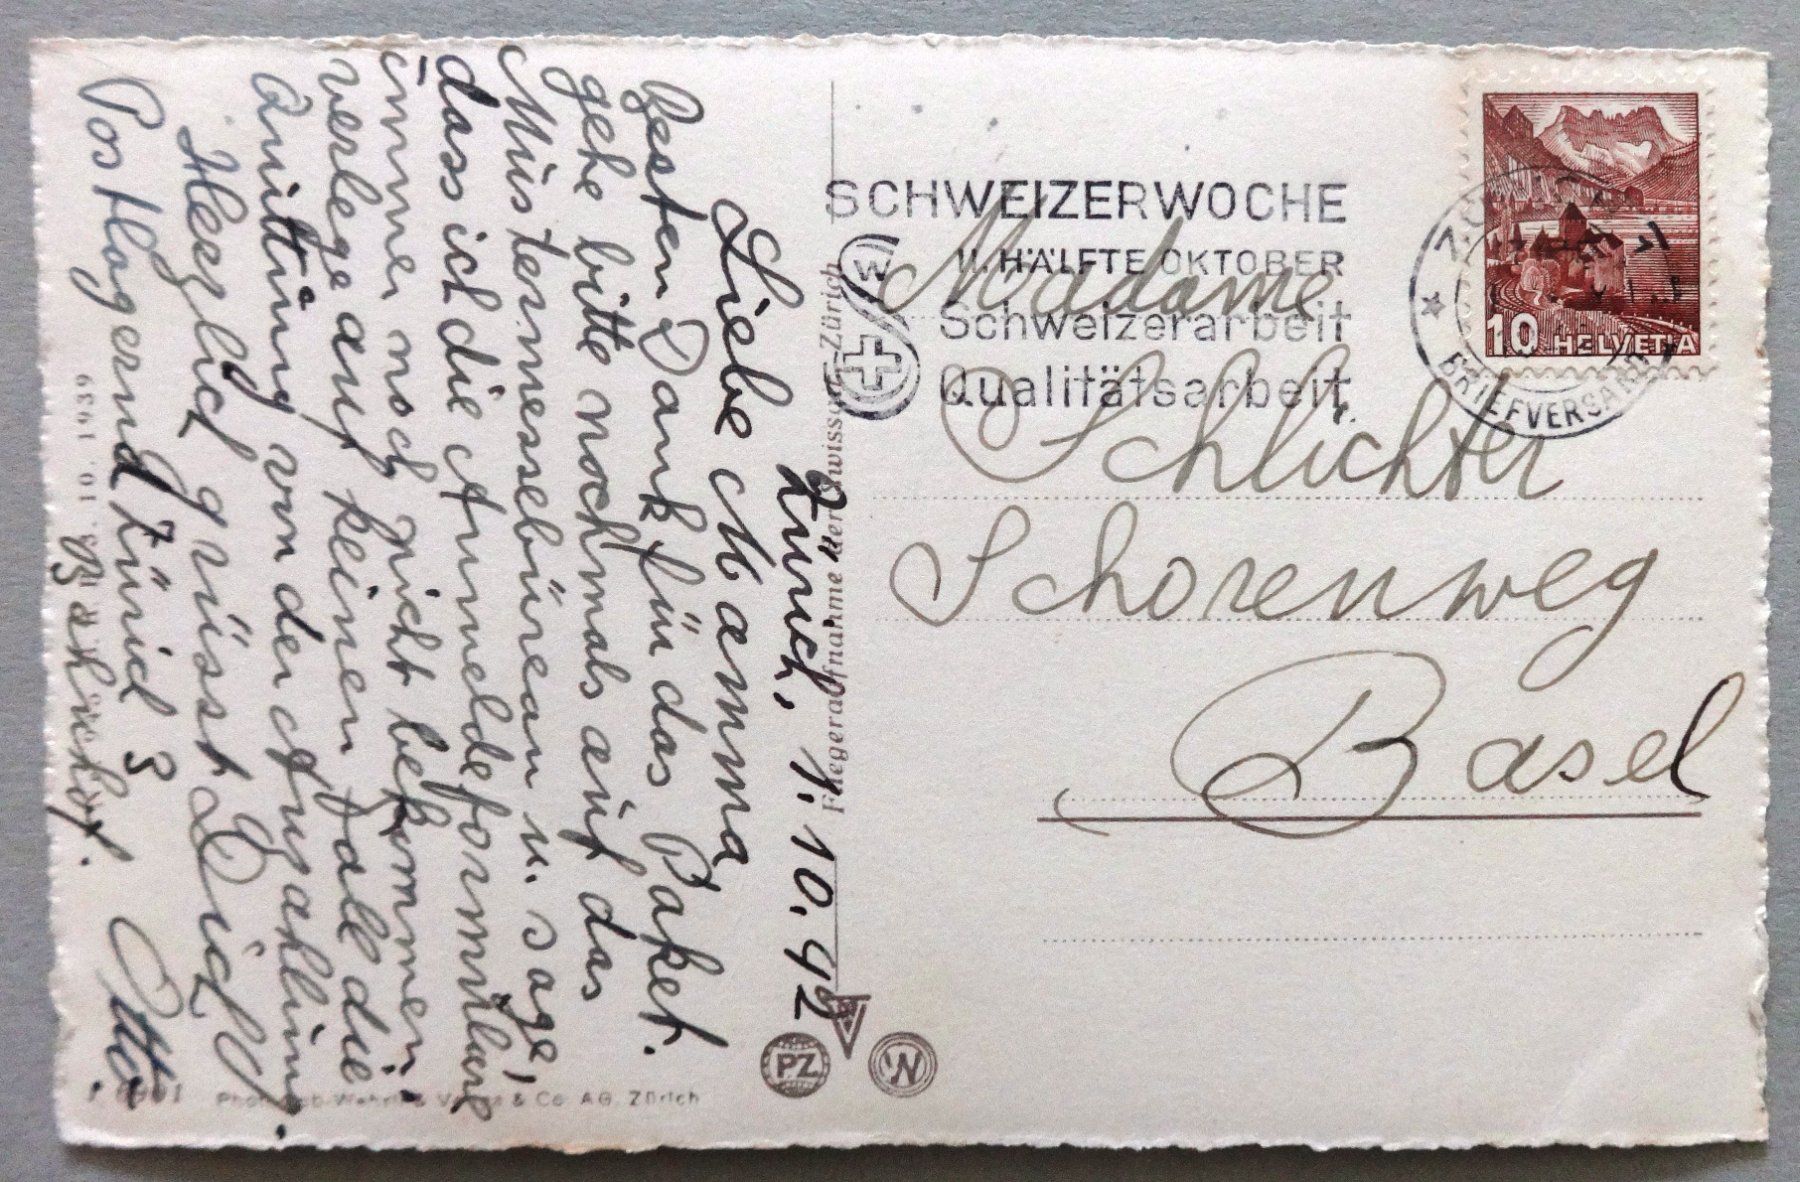 Zürich, 1. 10. 42
Liebe Mamma
Besten Dank für das Paket.
gehe bitte nochmals auf das
Mustermessebüreau u. sage,
dass ich die Anmeldeformulare
immer noch nicht bekommen.
verlege auf keinen Fall die
Quittung von der Anzahlung.
Herzlich grüsst Dich
Otto.
Postlagernd Zürich 3
Bahnhof.
SCHWEIZERWOCHE
II. HÄLFTE OKTOBER
Schweizerarbeit
Qualitätsarbeit
W
BRIEFVERSAND
10 HELVETIA
Madame
Schlichter
Schorenweg
Basel
Fliegeraufnahme der Swissair-Zürich
10. 1939
& Co AG. Zürich
PZ